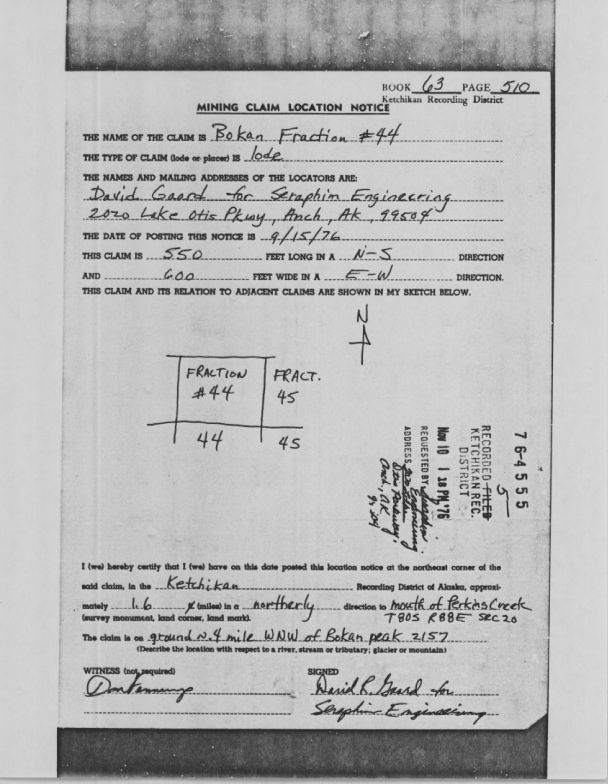 BOOK 63 PAGE 510
Ketchikan Recording District
MINING CLAIM LOCATION NOTICE
THE NAME OF THE CLAIM IS Bokan Fraction #44
THE TYPE OF CLAIM (lode or placer) IS lode
THE NAMES AND MAILING ADDRESSES OF THE LOCATORS ARE:
David Gaard for Seraphim Engineering
2020 Lake Otis Pkwy, Anch, Ak, 99504
THE DATE OF POSTING THIS NOTICE IS 9/15/76
THIS CLAIM IS 550 FEET LONG IN A N-S DIRECTION
AND 600 FEET WIDE IN A E-W DIRECTION.
THIS CLAIM AND ITS RELATION TO ADJACENT CLAIMS ARE SHOWN IN MY SKETCH BELOW.
N
FRACTION FRACT.
#44 45
44 45
76-4555
5
RECORDED-FILED
KETCHIKAN REC.
DISTRICT
Nov 10 1 18 PM '76
REQUESTED BY Seraphim
Engineering
ADDRESS
Otis Parkway,
Anch, AK
I (we) hereby certify that I (we) have on this date posted this location notice at the northeast corner of the
said claim, in the Ketchikan Recording District of Alaska, approxi-
mately 1.6 (miles) in a northerly direction to mouth of Perkins Creek
(survey monument, land corner, land mark). T80S R88E SEC 20
The claim is on ground N.4 mile WNW of Bokan peak 2157
(Describe the location with respect to a river, stream or tributary; glacier or mountain)
WITNESS (not required) SIGNED
David R. Gaard for
Seraphim Engineering